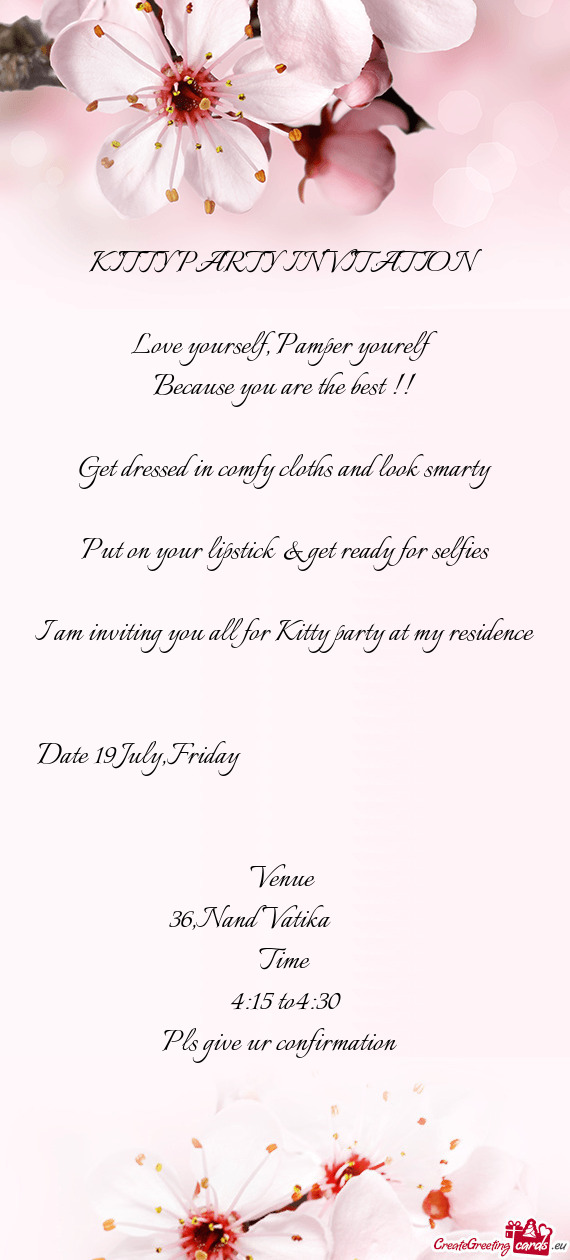 KITTY PARTY INVITATION
Love yourself, Pamper yourelf
Because you are the best !!
Get dressed in comfy cloths and look smarty
Put on your lipstick & get ready for selfies
I am inviting you all for Kitty party at my residence
Date 19July,Friday
Venue
36,Nand Vatika
Time
4:15 to4:30
Pls give ur confirmation
CreateGreeting cards .eu